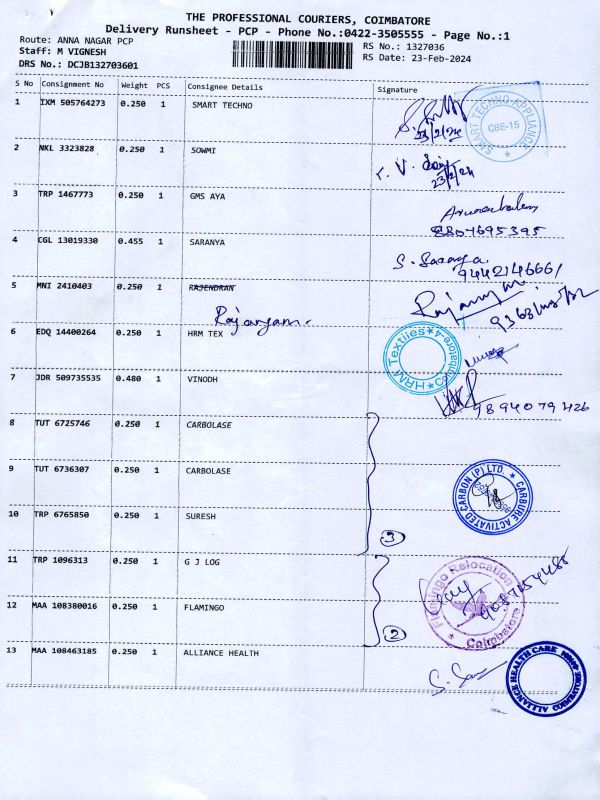 THE PROFESSIONAL COURIERS, COIMBATORE
Delivery Runsheet - PCP - Phone No.:0422-3505555 - Page No.:1
Route: ANNA NAGAR PCP
RS No.: 1327036
Staff: M VIGNESH
RS Date: 23-Feb-2024
DRS No.: DCJB132703601
S No Consignment No Weight PCS Consignee Details Signature
1 IXM 505764273 0.250 1 SMART TECHNO
23/2/24
SMART TECHNO APPLIANCE
CBE-15
2 NKL 3323828 0.250 1 SOWMI
23/2/24
3 TRP 1467773 0.250 1 GMS AYA
8807695395
4 CGL 13019330 0.455 1 SARANYA
S. Saranya
9442146661
5 MNI 2410403 0.250 1 RAJENDRAN
Rajangam.
6 EDQ 14400264 0.250 1 HRM TEX
HRM Textiles Coimbatore-4
7 JDR 509735535 0.480 1 VINODH
9894079426
8 TUT 6725746 0.250 1 CARBOLASE
9 TUT 6736307 0.250 1 CARBOLASE
CARBURE ACTIVATED CARBON (P) LTD.
10 TRP 6765850 0.250 1 SURESH
3
11 TRP 1096313 0.250 1 G J LOG
12 MAA 108380016 0.250 1 FLAMINGO
Flamingo Relocation
Coimbatore
2
13 MAA 108463185 0.250 1 ALLIANCE HEALTH
ALLIANCE HEALTH CARE
COIMBATORE